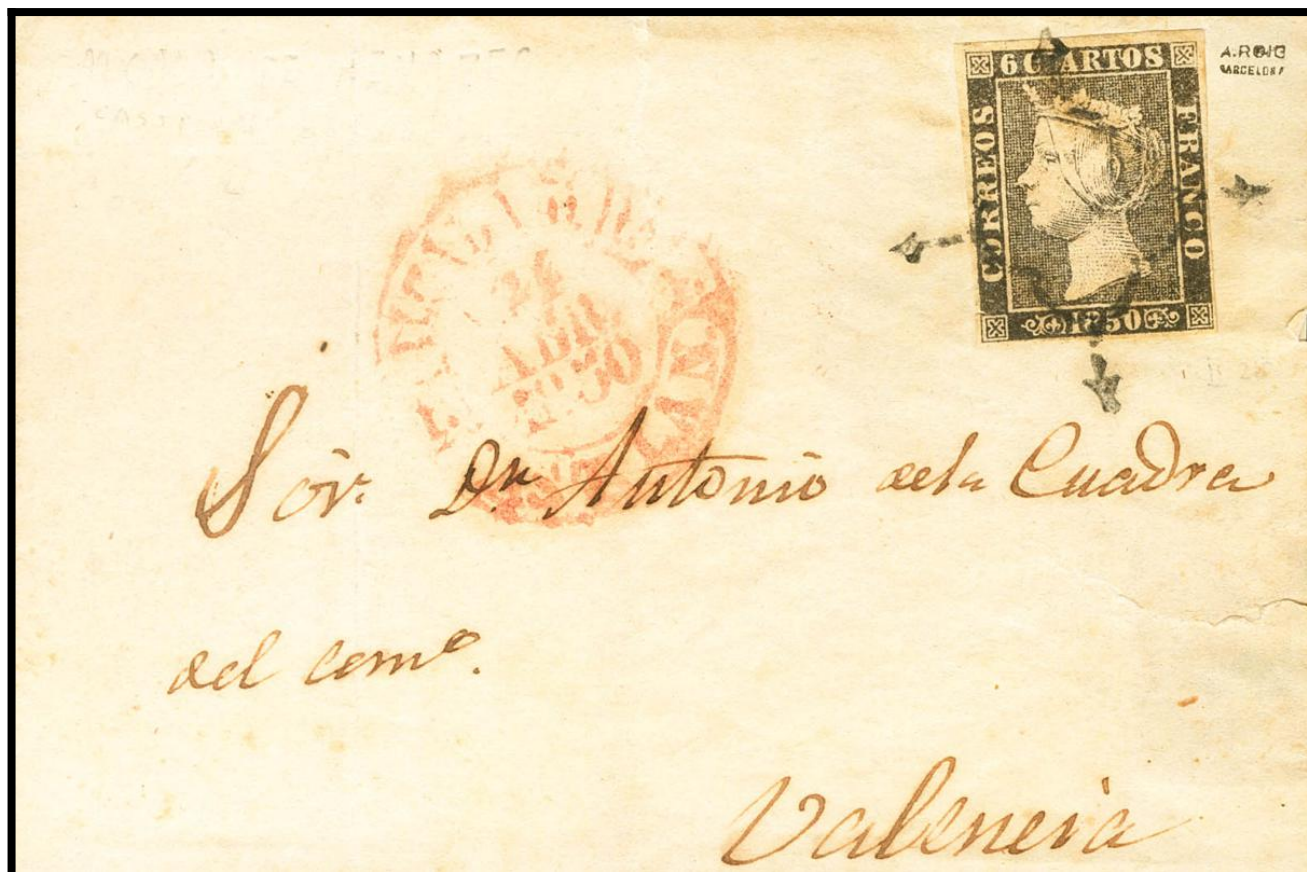 6 CUARTOS
CORREOS
FRANCO
1850
A. ROIG
BARCELONA
24
ABR.
1850
Sór. Dn. Antonio dela Cuadra
del como.
Valencia